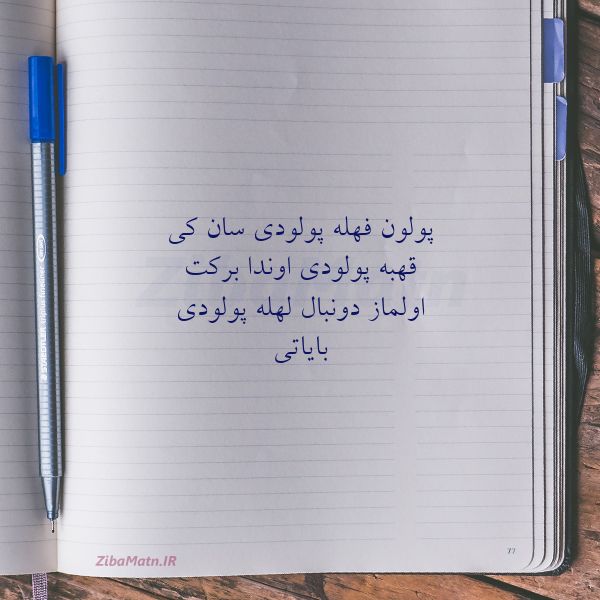 پولون فهله پولودی سان کی
قهبه پولودی اوندا برکت
اولماز دونبال لهله پولودی
بایاتی
ZibaMatn.IR